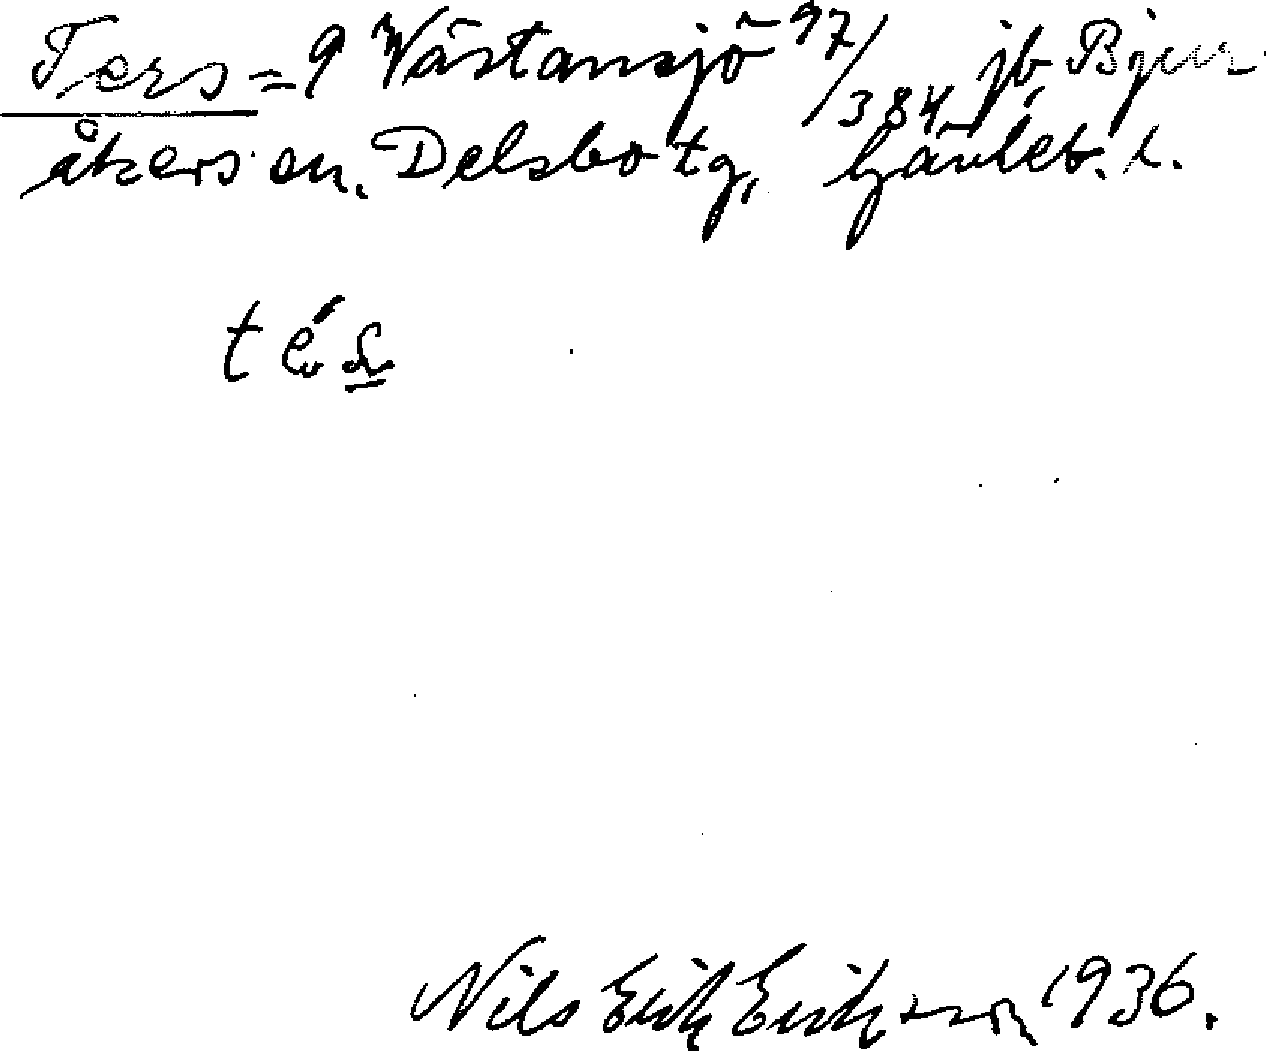 Ters = 9 Västansjö 97/384 jb, Bjur-
åkers sn. Delsbo tg, Gävleb. l.
Nils Erik Eriksson 1936.